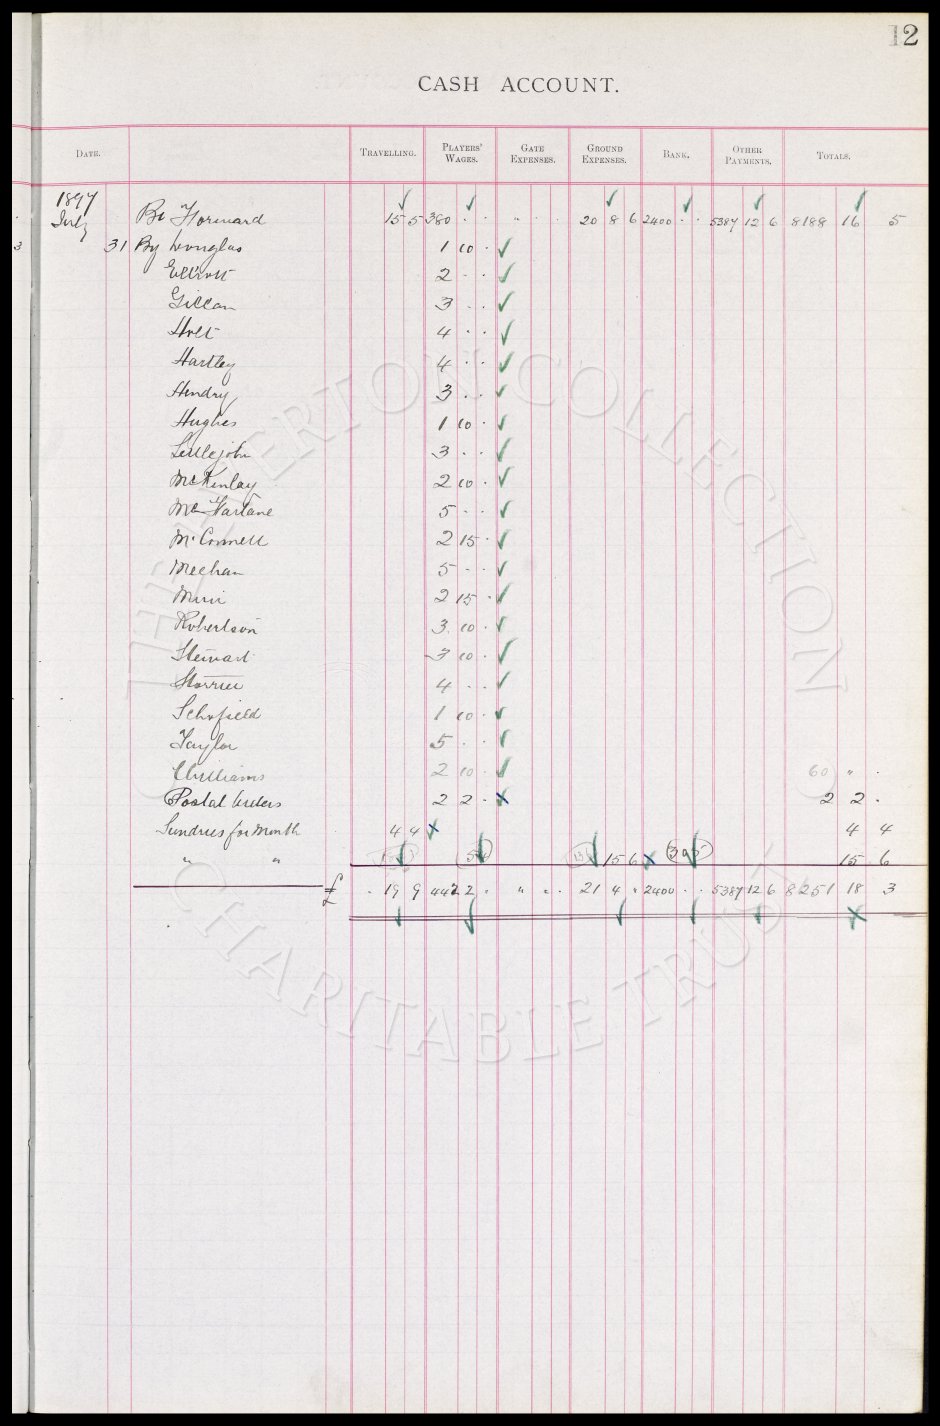 12
CASH ACCOUNT.
DATE. TRAVELLING. PLAYERS' WAGES. GATE EXPENSES. GROUND EXPENSES. BANK. OTHER PAYMENTS. TOTALS.
1897
July Bt Forward 15 5 380 . . " . . 20 8 6 2400 . . 5387 12 6 8188 16 5
31 By Douglas 1 10 .
Elliott 2 . .
Gillan 3 . .
Holt 4 . .
Hartley 4 . .
Hendry 3 . .
Hughes 1 10 .
Littlejohn 3 . .
McKinlay 2 10 .
McFarlane 5 . .
McConnell 2 15 .
Meehan 5 . .
Muir 2 15 .
Robertson 3 10 .
Stewart 3 10 .
Storrier 4 . .
Schofield 1 10 .
Taylor 5 . .
Williams 2 10 . 60 " .
Postal Orders 2 2 . 2 2 .
Sundries for Month 4 4 4 4
" " 15 6 15 6
£ . 19 9 442 2 " " " . 21 4 " 2400 . . 5387 12 6 8251 18 3
THE EVERTON COLLECTION
CHARITABLE TRUST